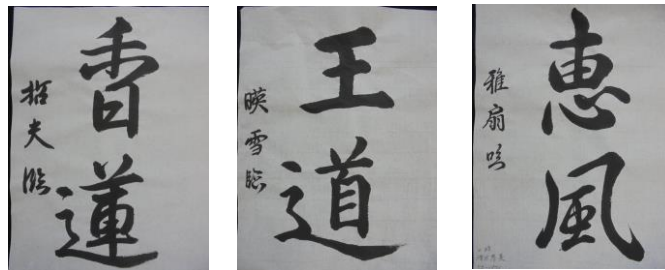 香蓮
哲夫臨
王道
暎雪臨
恵風
雅扇